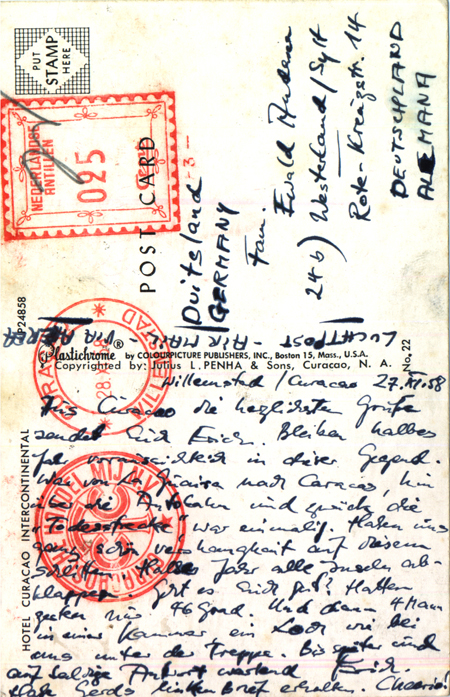 PUT
STAMP
HERE
NEDERLANDSE
ANTILLEN
025
POST CARD
Duitsland
GERMANY
Fam.
Ewald
24b) Westerland/Sylt
Rote-Kreuzstr. 14
DEUTSCHLAND
ALEMANA
LUCHTPOST - AIR MAIL - VIA AEREA
P24858
WILLEMSTAD
CURAÇAO
28.XI
Plastichrome® by COLOURPICTURE PUBLISHERS, INC., Boston 15, Mass., U.S.A.
Copyrighted by: Julius L. PENHA & Sons, Curacao, N. A.
No. 22
HOTEL CURACAO INTERCONTINENTAL
Willemstad / Curacao 27.XI.58
Aus Curacao die herzlichsten Grüße
sendet Euch Erich. Bleiben halbes
Jahr in dieser Gegend.
War von La Guaira nach Caracas, hin
die Autobahn und zurück die
"Todesstrecke" war einmalig. Haben uns
ganz schön auf diesem
Jahr alle Inseln ab-
klappern. geht es Euch gut? Hatten
46 Grad. Und dann 4 Mann
in einer Kammer, ein Loch wie bei
uns unter der Treppe. Bis später und
auf baldige Antwort wartend Erich.
Hab Gerdas Brief erhalten. Cheerio!